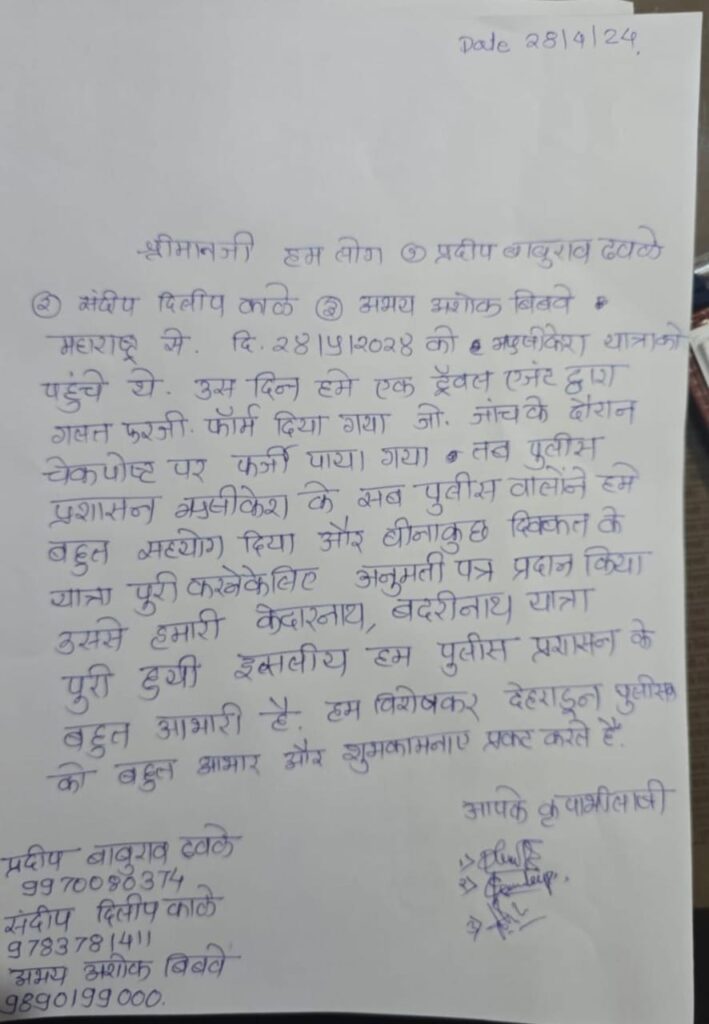 Date 28/4/24.
श्रीमानजी हम लोग ① प्रदीप बाबुराव ढवळे
② संदीप दिलीप काळे ③ अभय अशोक बिबवे
महाराष्ट्र से. दि. २८/५/२०२४ को ऋषीकेश यात्राको
पहुंचे थे. उस दिन हमे एक ट्रॅवल एजंट द्वारा
गलत फरजी. फॉर्म दिया गया जो. जांच के दौरान
चेकपोष्ट पर फर्जी पाया गया तब पुलीस
प्रशासन ऋषीकेश के सब पुलीस वालोंने हमे
बहुत सहयोग दिया और बीनाकुछ दिक्कत के
यात्रा पुरी करनेकेलिए अनुमती पत्र प्रदान किया
उससे हमारी केदारनाथ, बदरीनाथ यात्रा
पुरी हुयी इसलीय हम पुलीस प्रशासन के
बहुत आभारी है. हम विशेषकर देहराडून पुलीस
को बहुत आभार और शुभकामनाए प्रकट करते है.
आपके कृपाभीलाषी
१)
२)
३)
प्रदीप बाबुराव ढवळे
9970080374
संदीप दिलीप काळे
9783781411
अभय अशोक बिबवे
9890199000.